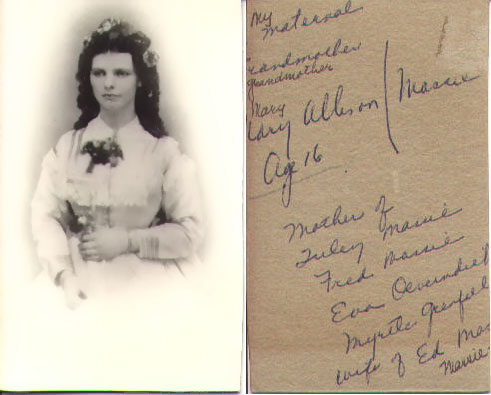 My
Maternal
Grandmother
Grandmother
Mary
Mary Allison / Massie
Age 16
Mother of
Tuley Massie
Fred Massie
Eva
Myrtle
wife of Ed Mas
Massie